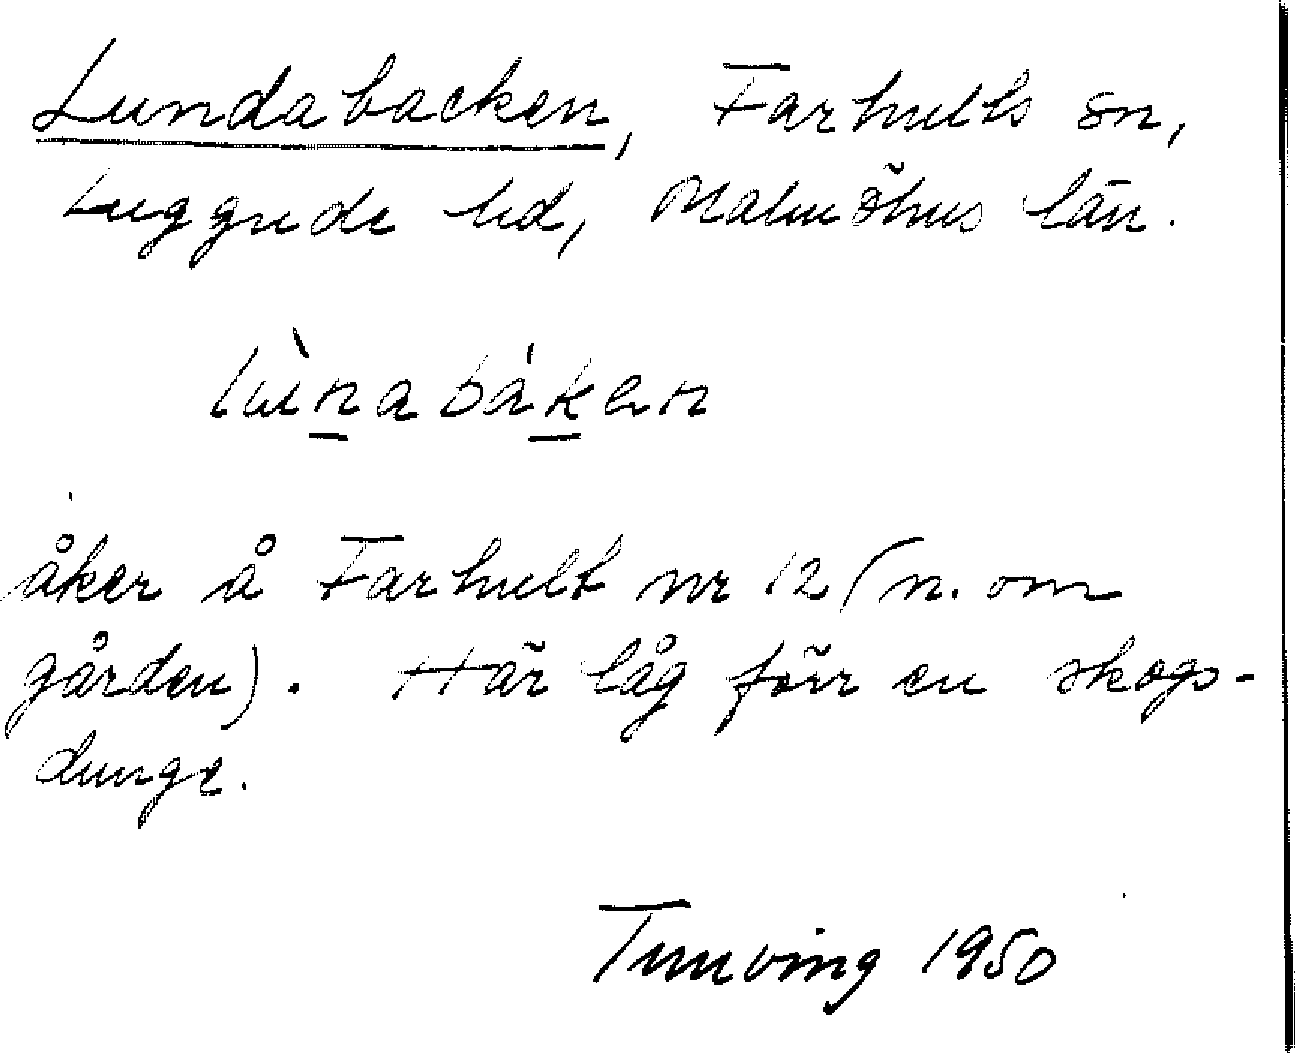 Lundabacken, Farhults sn,
Luggude hd, Malmöhus län.
lùnabáken
åker å Farhult nr 12 (n. om
gården). Här låg förr en skogs-
dunge.
Tunving 1950